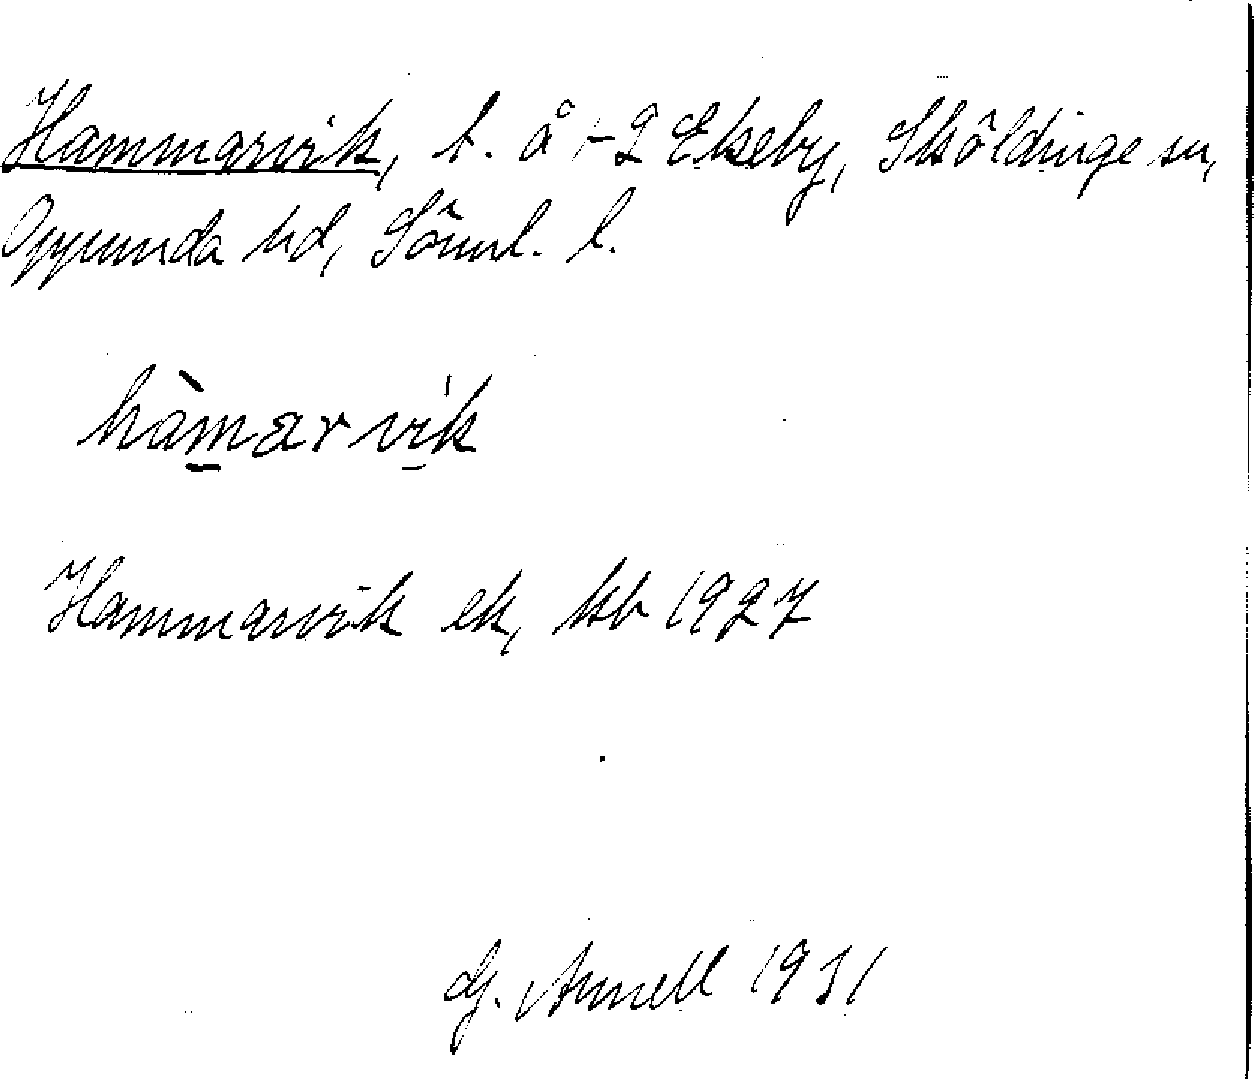 Hammarvik, t. å 1-2 Ekeby, Sköldinge sn,
Oppunda hd, Söml. l.
hàmarvik
Hammarvik ek, kb 1927
G. Annell 1931